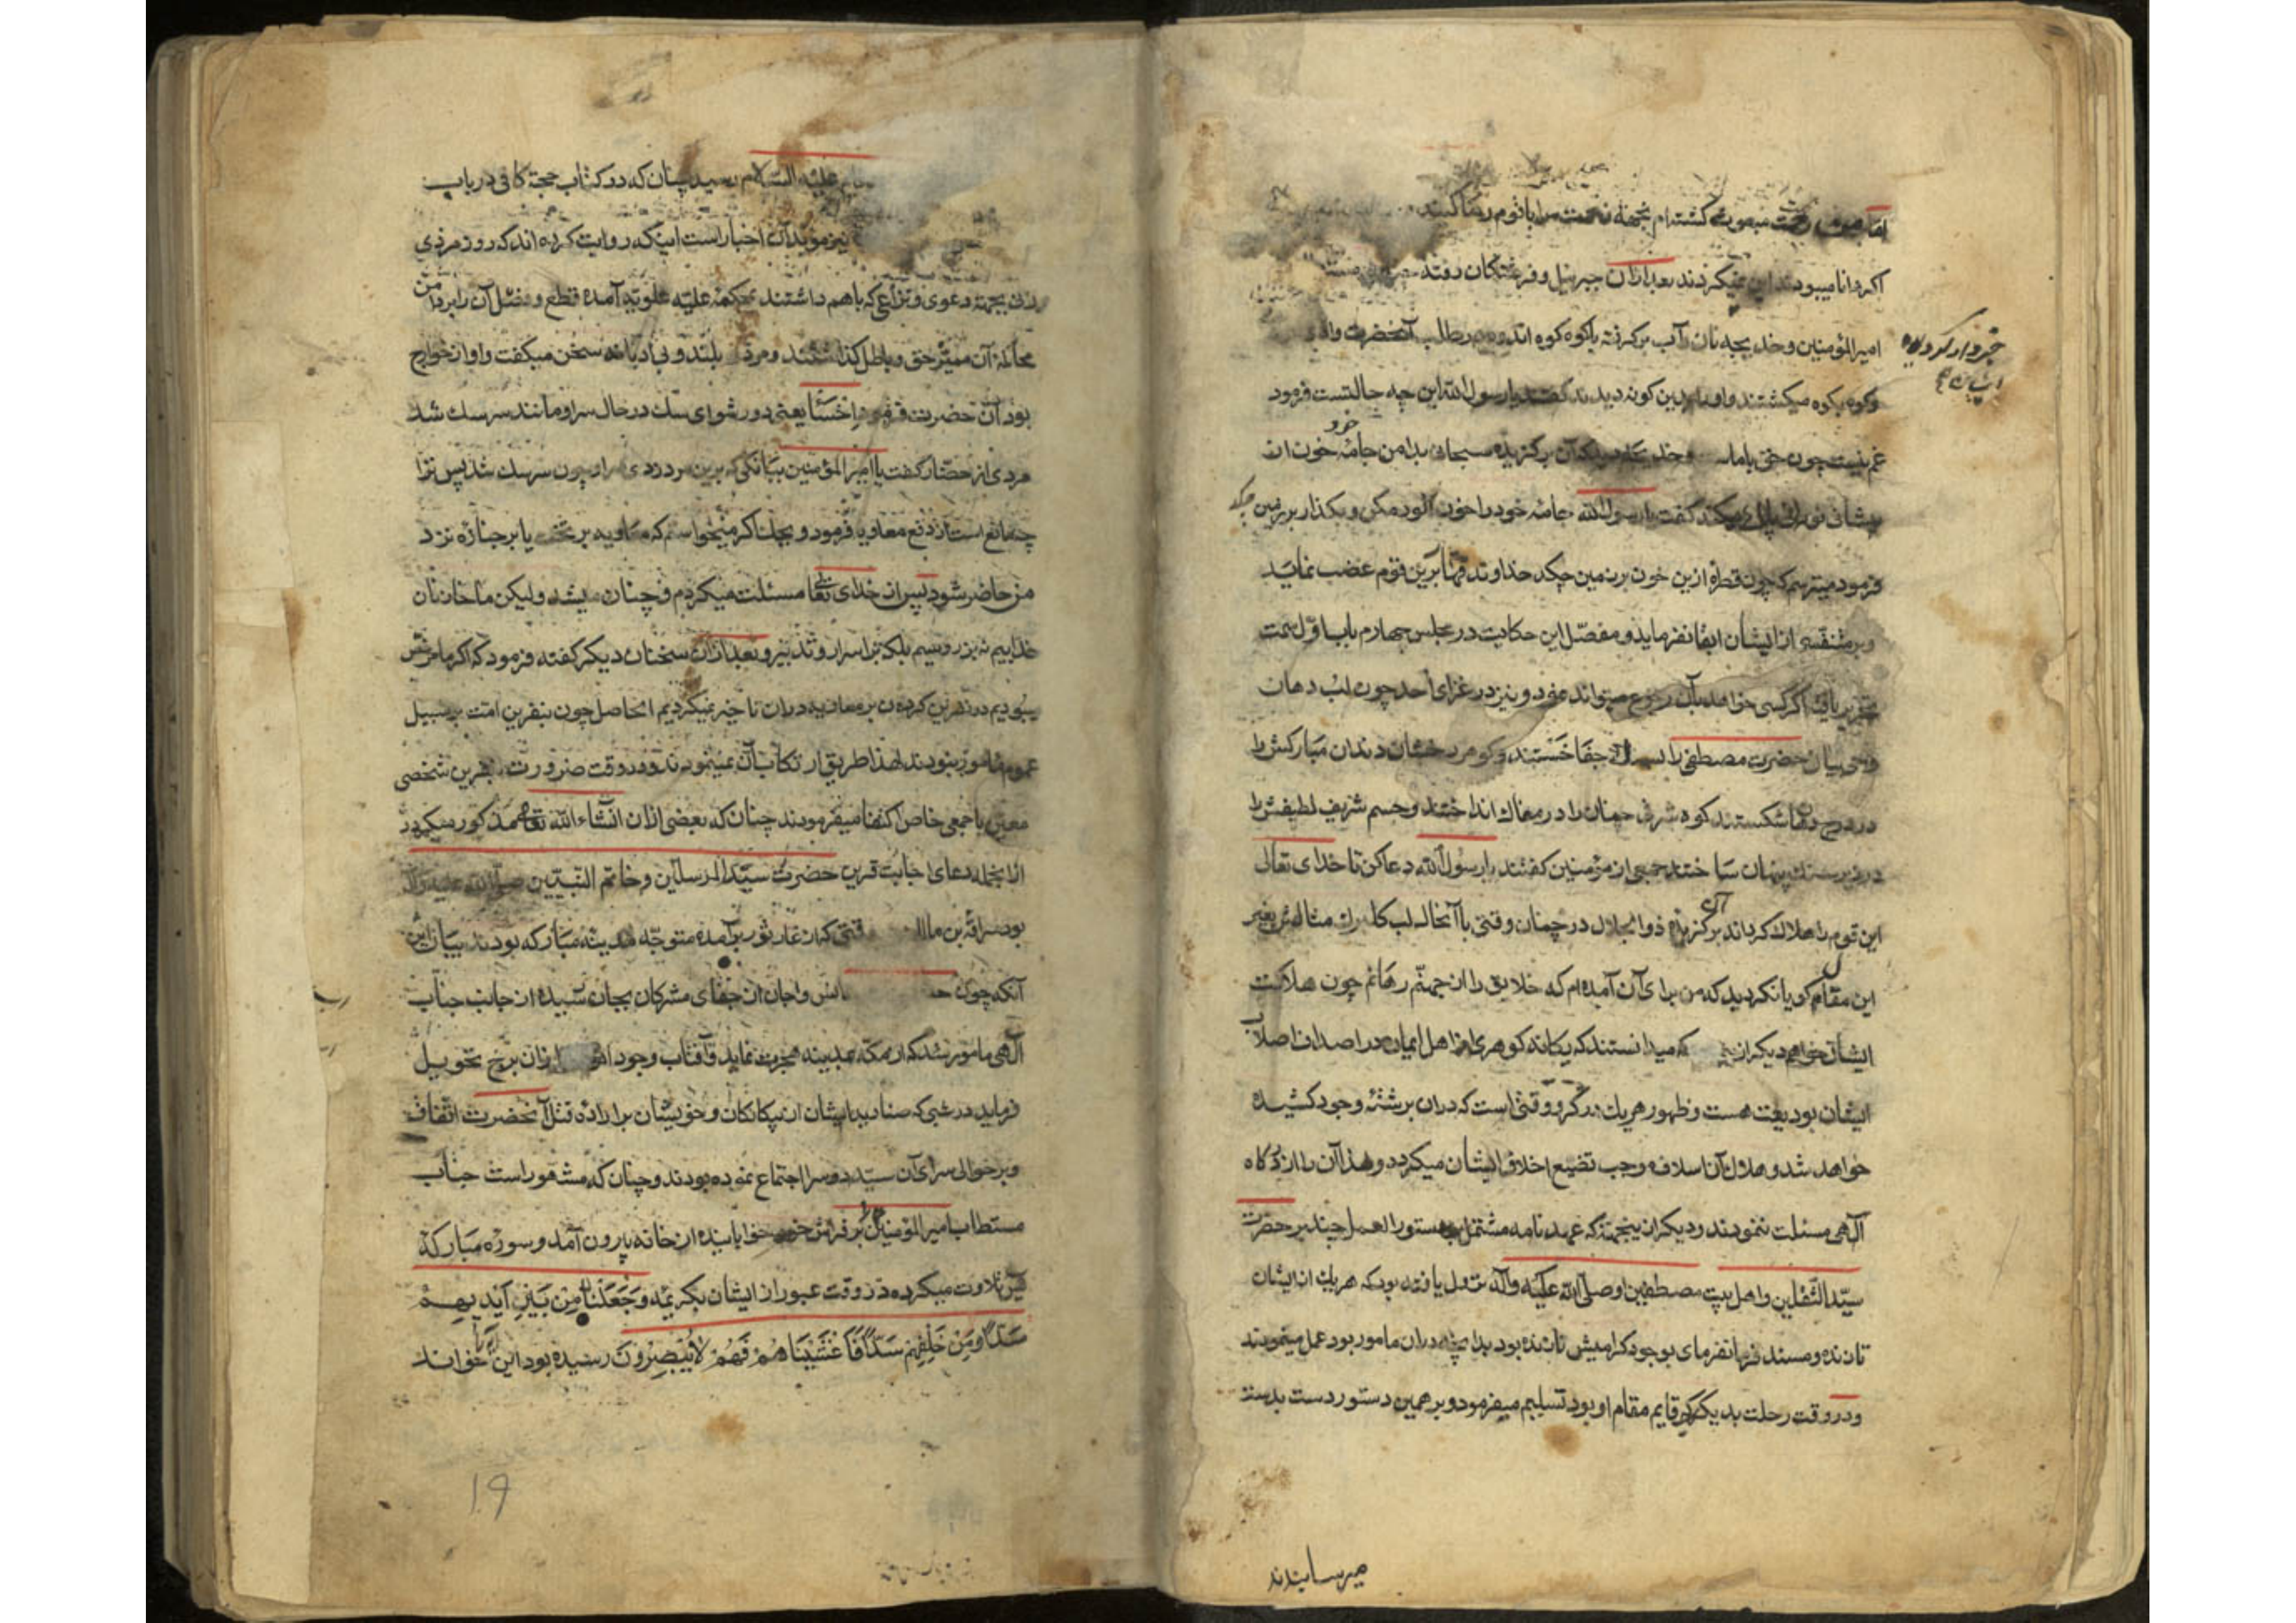 رحمت مبعوث گشته‌ام بجهة زحمت مرا با قوم رها کنید
اگر دانا میبودند این نمیکردند بعد ازان جبرئیل و فرشتگان رفتند
امیرالمؤمنین و خدیجه نان و آب برگرفته با کوه کوه اندوه در طلب آنحضرت وادی
وکوه بکوه میگشتند و او را بدین گونه دیدند گفتند یا رسول الله این چه حالتست فرمود
غم نیست چون حق با ماست و خدیجه دید که آن برگزیده سبحان بدامن جامه خون از
خود
پیشانی نورانی پاک میکند گفت یا رسول الله جامه خود را خون آلود مکن و بگذار بر زمین چکد
فرمود میترسم که چون قطره ازین خون بر زمین چکد خداوند قهار برین قوم غضب نماید
و بر متنفسی از ایشان ابقا نفرماید و مفصل این حکایت در مجلس چهارم باب اول سمت
تحریر یافته اگر کسی خواهد بآن رجوع میتواند نمود و نیز در غزای احد چون لب دهان
وحی بیان حضرت مصطفی را بسنگ جفا خستند و گوهر درخشان دندان مبارکش را
در درج دهان شکستند کوه شرف جهان را در مغاک انداختند و جسم شریف لطیفش را
در زیر سنک پنهان ساختند جمعی از مؤمنین گفتند یا رسول الله دعا کن تا خدای تعالی
این قوم را هلاک گرداند آن برگزیده ذوالجلال در چنان وقتی با آنحال لب کلبرک مثالش بغیر
این مقال گویا نگردید که من برای آن آمده‌ام که خلایق را از جهنم رهانم چون هلاکت
ایشان خواهم دیگر که میدانستند که یکانه گوهری از اهل ایمان در اصداف اصلاب
ایشان بودیعت هست و ظهور هر یک در گرو وقتی است که دران برشته وجود کشیده
خواهد شد و هلاک آن اسلاف موجب تضییع اخلاف ایشان میگردد و لهذا آن را از درگاه
آلهی مسئلت ننمودند و دیگر ازینجهة که عهدنامه مشتمل بدستورالعمل چند بر حضرت
سیدالثقلین و اهل بیت مصطفین او صلی الله علیه وآله نزول یافته بود که هر یک از ایشان
تا زنده و مسند فرمانفرمای بوجود گرامیش نازنده بود بدانچه دران مامور بود عمل مینمودند
و در وقت رحلت بدیگری که قایم مقام او بود تسلیم میفرمود و بر همین دستور دست بدست
میرسانیدند
علیه السلام رسید چنان که در کتاب حجة کافی در باب
نیز مؤید آن اخبار است اینکه روایت کرده‌اند که روز مردی
وزنی بجهة دعوی و نزاعی که با هم داشتند بمحکمه علیه علویه آمده قطع و فصل آن را بر دامن
محاکمه آن ممیز حق و باطل گذاشتند و مرد بلند و بی ادبانه سخن میگفت و او از خوارج
بود آن حضرت فرمود اخسأ یعنی دور شو ای سک در حال سر او مانند سر سک شد
مردی از حضار گفت یا امیرالمؤمنین ببانگی که برین مرد زدی سر او چون سر سک شد پس ترا
چه مانع است از دفع معاویه فرمود ویحک اگر میخواستم که معاویه بر تخت یا بر جنازه نزد
من حاضر شود پس از خدای تعا مسئلت میکردم و چنان میشد ولیکن ما خازنان
خداییم نه بزر و سیم بلکه بر اسرار و تدبیر و بعد ازان سخنان دیگر گفته فرمود که اگر مامور
میبودیم در نفرین کردن بر معاویه دران تاخیر نمیکردیم الحاصل چون بنفرین امت بر سبیل
عموم مامور نبودند لهذا طریق ارتکاب آن نمینمودند و در وقت ضرورت بنفرین شخصی
معین یا جمعی خاص اکتفا میفرمودند چنان که بعضی ازان انشاء الله تعا مذکور میگردد
ازانجمله دعای اجابت قرین حضرت سید المرسلین و خاتم النبیین صلی الله علیه وآله
بود سراقة بن مالک وقتی که از غار ثور برآمده متوجه مدینه مبارکه بودند بیان این
آنکه چون از جفای مشرکان بجان رسیده از جانب جناب
آلهی مامور شد که از مکه بمدینه هجرت نماید و آفتاب وجود ازان برج تحویل
فرماید در شبی که صنادید ایشان از بیکانکان و خویشان باراده قتل آنحضرت اتفاق
و بر حوالی سرای آن سید دوسرا اجتماع نموده بودند و چنان که مشهور است جناب
مستطاب امیرالمؤمنین را بر فراش خود خوابانیده از خانه بیرون آمد و سوره مبارکه
یس تلاوت میکرده در وقت عبور از ایشان بکریمه وَجَعَلْنَا مِنْ بَيْنِ أَيْدِيهِمْ
سَدًّا وَمِنْ خَلْفِهِمْ سَدًّا فَأَغْشَيْنَاهُمْ فَهُمْ لَا يُبْصِرُونَ رسیده بود این آیه خواند
۱۹